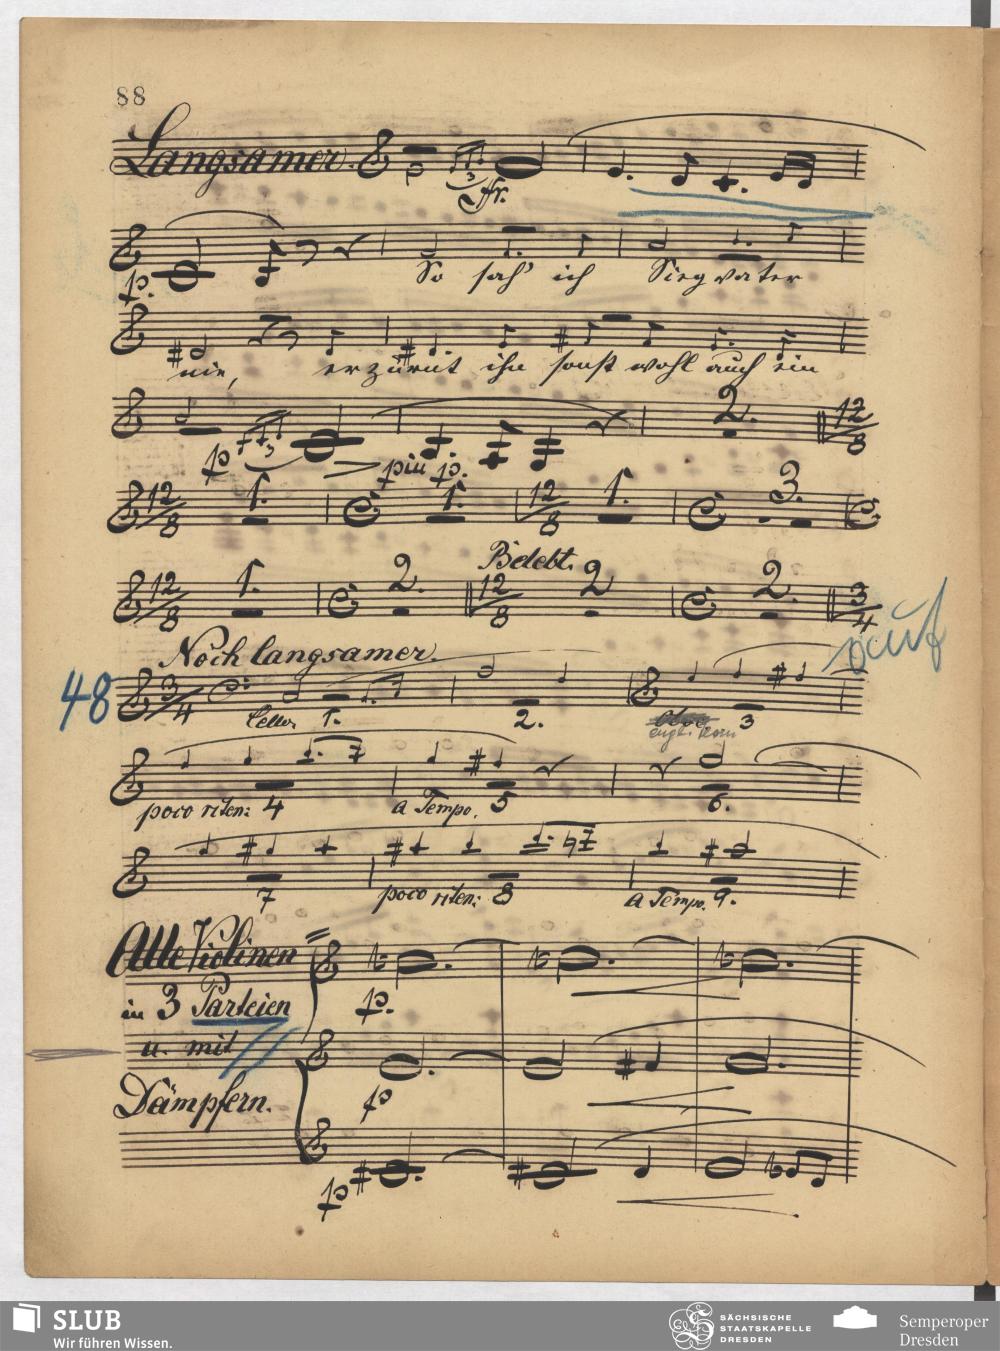 88
Langsamer.
3
fr.
p.
So sah' ich Siegvater
nie, erzürnt ihn sonst wohl auch ein
2.
12
8
p 3 più p.
12
8 1. 1. 12
8 1. 3.
Belebt.
12
8 1. 2. 12
8 2 2. 3
4
auf
Noch langsamer.
48
3
4
Cello. 1. 2. 3
engl. Horn
poco riten: 4 a Tempo. 5 6.
7 poco riten: 8 a Tempo. 9.
Alle Violinen
in 3 Parteien
p.
u. mit
Dämpfern.
p
p
SLUB
Wir führen Wissen.
SÄCHSISCHE
STAATSKAPELLE
DRESDEN
Semperoper
Dresden